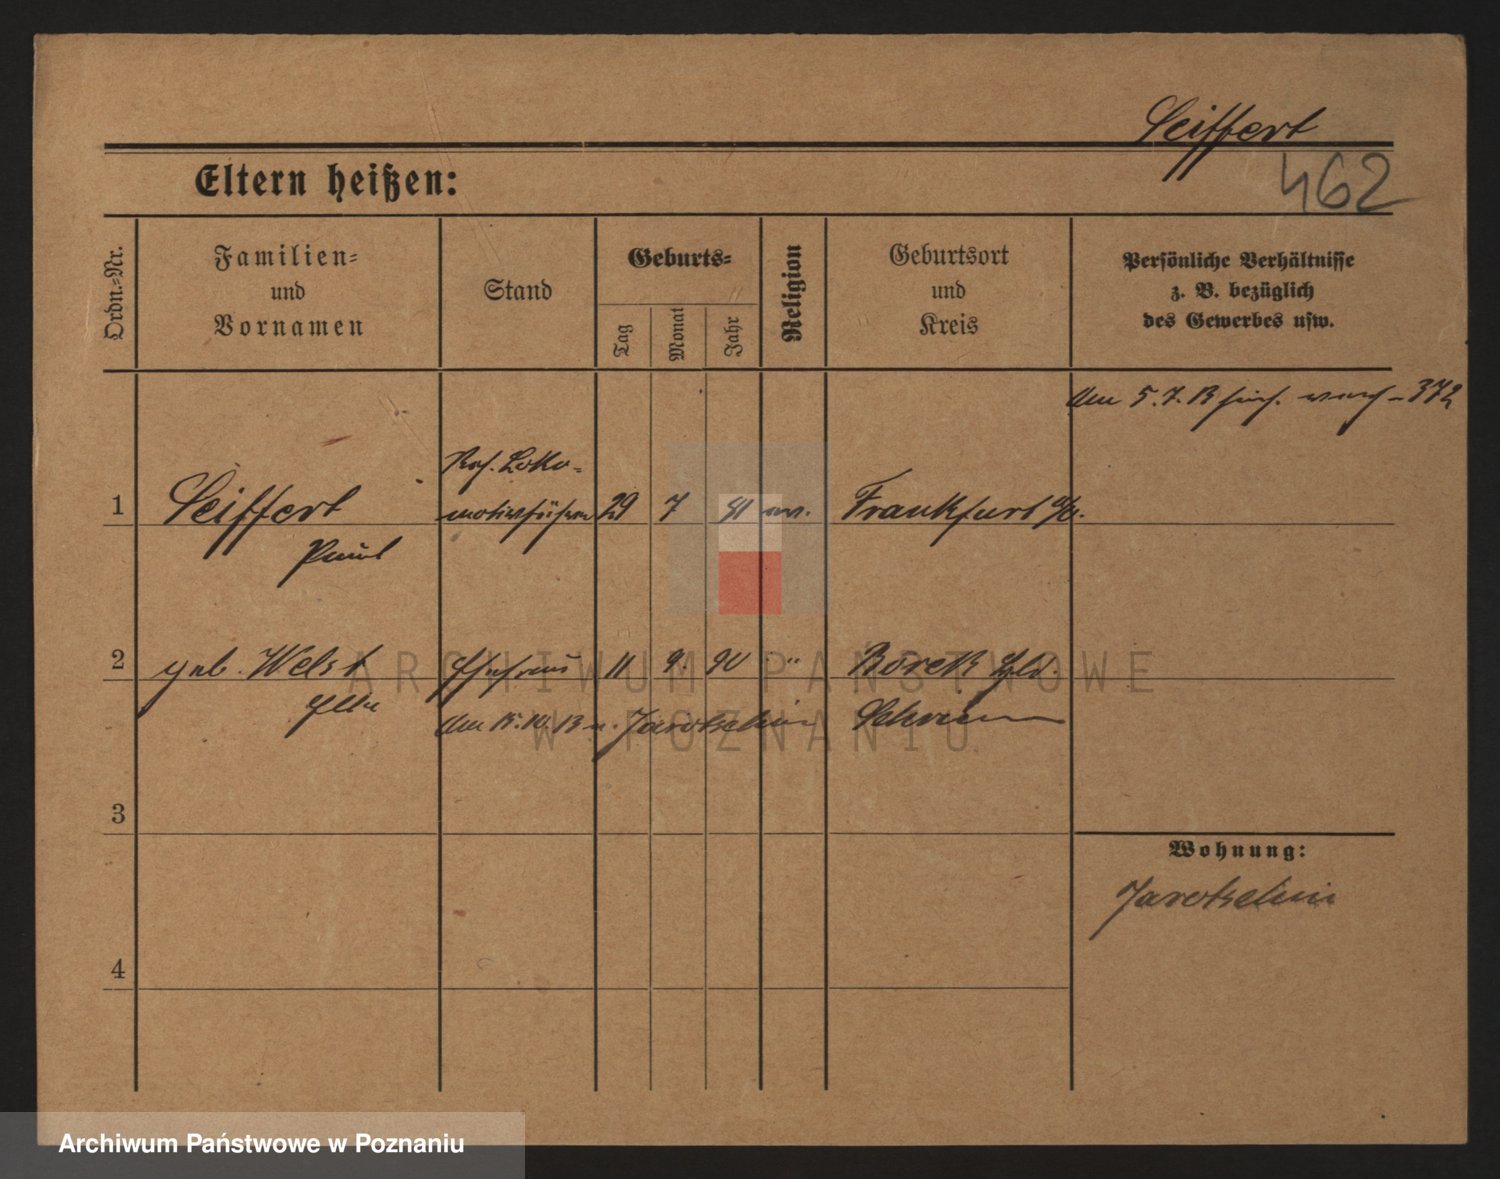 Seiffert
462
Eltern heißen:
Ordn.-Nr.
Familien-
und
Vornamen
Stand
Geburts-
Tag
Monat
Jahr
Religion
Geburtsort
und
Kreis
Persönliche Verhältnisse
z. B. bezüglich
des Gewerbes usw.
Am 5.7.13 372
1
Seiffert
Paul
Res. Loko-
motivführer
29 7 81 ev.
Frankfurt a/O.
2
geb. Welst
Else
Ehefrau
11 9. 90 "
Borek
Am 15.10.13 n. Jarotschin
Schrimm
3
4
Wohnung:
Jarotschin
ARCHIWUM PAŃSTWOWE
W POZNANIU
Archiwum Państwowe w Poznaniu